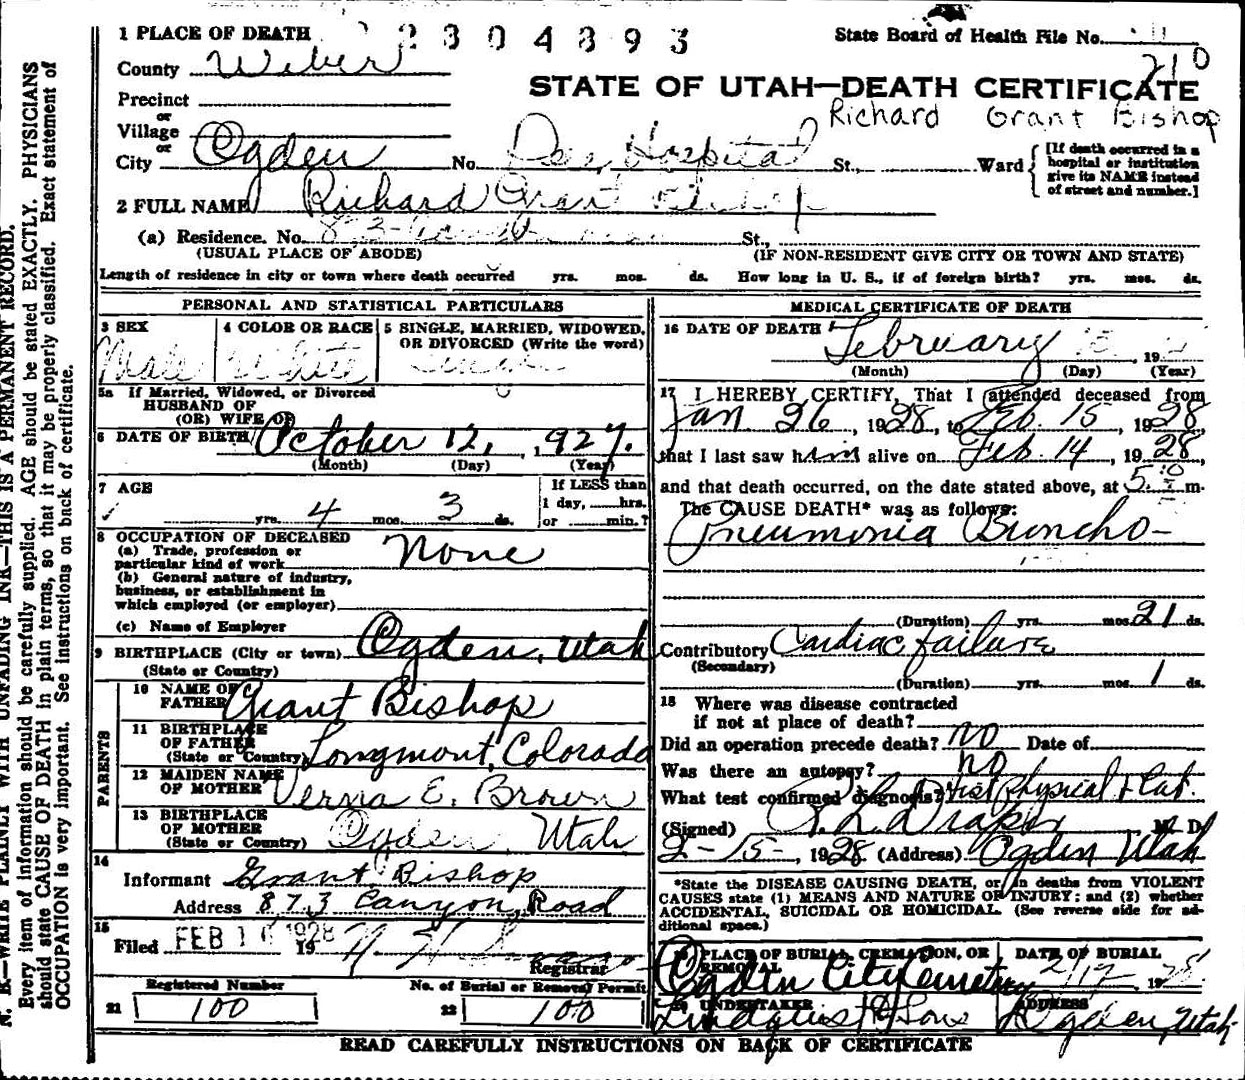 1 PLACE OF DEATH 2304393 State Board of Health File No.
County Weber 210
STATE OF UTAH—DEATH CERTIFICATE
Precinct
or
Richard Grant Bishop
Village
or
City Ogden No. Dee Hospital St., Ward [If death occurred in a hospital or institution give its NAME instead of street and number.]
2 FULL NAME Richard Grant Bishop
(a) Residence. No. St.,
(USUAL PLACE OF ABODE) (IF NON-RESIDENT GIVE CITY OR TOWN AND STATE)
Length of residence in city or town where death occurred yrs. mos. ds. How long in U. S., if of foreign birth? yrs. mos. ds.
PERSONAL AND STATISTICAL PARTICULARS
3 SEX 4 COLOR OR RACE 5 SINGLE, MARRIED, WIDOWED,
OR DIVORCED (Write the word)
Male White Single
5a If Married, Widowed, or Divorced
HUSBAND OF
(OR) WIFE OF
6 DATE OF BIRTH October 12, 1927.
(Month) (Day) (Year)
7 AGE If LESS than
1 day, hrs.
yrs. 4 mos. 3 ds. or min.?
8 OCCUPATION OF DECEASED
(a) Trade, profession or
particular kind of work None
(b) General nature of industry,
business, or establishment in
which employed (or employer)
(c) Name of Employer
9 BIRTHPLACE (City or town) Ogden, Utah
(State or Country)
PARENTS
10 NAME OF
FATHER Grant Bishop
11 BIRTHPLACE
OF FATHER
(State or Country) Longmont, Colorado
12 MAIDEN NAME
OF MOTHER Verna E. Brown
13 BIRTHPLACE
OF MOTHER
(State or Country) Ogden, Utah
14
Informant Grant Bishop
Address 873 Canyon Road
15
Filed FEB 16 1928 19
Registrar
Registered Number No. of Burial or Removal Permit
21 100 22 100
MEDICAL CERTIFICATE OF DEATH
16 DATE OF DEATH
February , 192
(Month) (Day) (Year)
17 I HEREBY CERTIFY, That I attended deceased from
Jan 26, 1928, to Feb. 15, 1928
that I last saw him alive on Feb. 14, 1928,
and that death occurred, on the date stated above, at m.
The CAUSE DEATH* was as follows:
Pneumonia Broncho-
(Duration) yrs. mos. 21 ds.
Contributory Cardiac failure
(Secondary)
(Duration) yrs. mos. 1 ds.
18 Where was disease contracted
if not at place of death?
Did an operation precede death? no Date of
Was there an autopsy? no
What test confirmed diagnosis? Hist Physical + Lab.
(Signed) Draper M. D.
2-15-, 1928 (Address) Ogden Utah
*State the DISEASE CAUSING DEATH, or in deaths from VIOLENT
CAUSES state (1) MEANS AND NATURE OF INJURY; and (2) whether
ACCIDENTAL, SUICIDAL OR HOMICIDAL. (See reverse side for ad-
ditional space.)
PLACE OF BURIAL, CREMATION, OR DATE OF BURIAL
REMOVAL
Ogden City Cemetery 1928
UNDERTAKER ADDRESS
Lindquist & Sons Ogden, Utah
READ CAREFULLY INSTRUCTIONS ON BACK OF CERTIFICATE
N. B.—WRITE PLAINLY WITH UNFADING INK—THIS IS A PERMANENT RECORD.
Every item of information should be carefully supplied. AGE should be stated EXACTLY. PHYSICIANS
should state CAUSE OF DEATH in plain terms, so that it may be properly classified. Exact statement of
OCCUPATION is very important. See instructions on back of certificate.